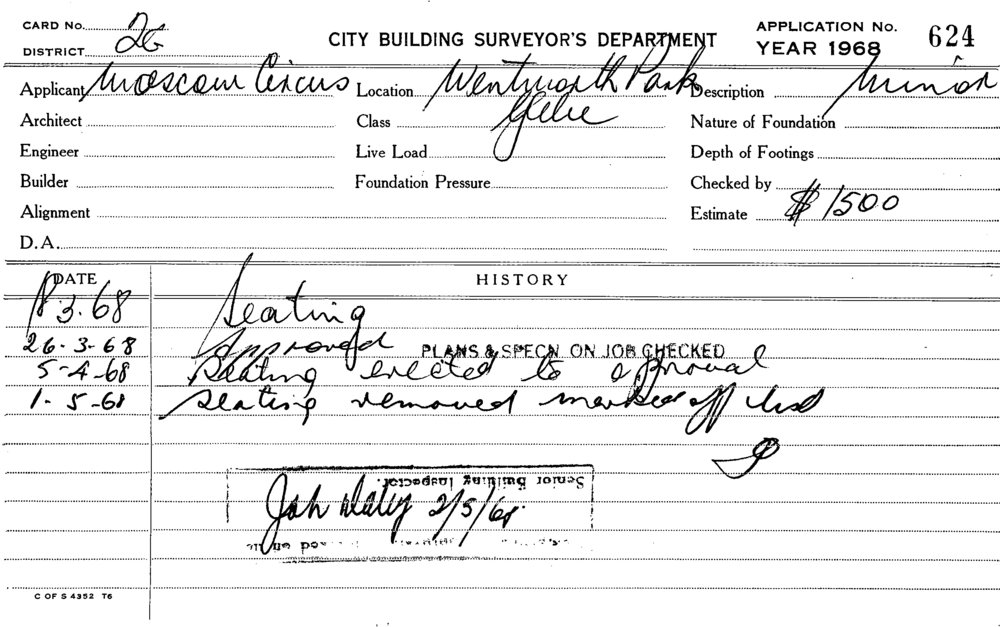 CARD No.
DISTRICT 26
CITY BUILDING SURVEYOR'S DEPARTMENT
APPLICATION No. 624
YEAR 1968
Applicant Moscow Circus Location Wentworth Park Description Minor
Architect Class Glebe Nature of Foundation
Engineer Live Load Depth of Footings
Builder Foundation Pressure Checked by
Alignment Estimate $1500
D.A.
DATE HISTORY
3.68 Seating
26-3-68 Approved PLANS & SPECN ON JOB CHECKED
5-4-68 Seating erected to approval
1-5-68 Seating removed marked off
Senior Building Inspector.
Daley 2/5/68
C OF S 4352 T6